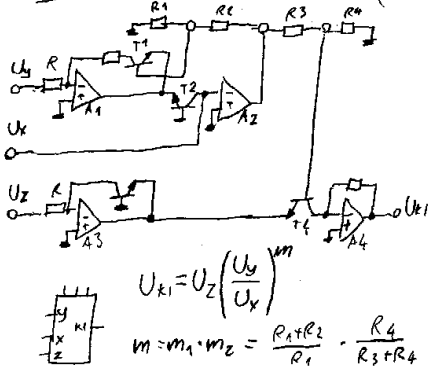 R1 R2 R3 R4
Uy R T1
A1 T2 A2
Ux
Uz R A3 T4 A4 Uk1
Uk1 = Uz (Uy/Ux)^m
y x z k1
m = m1 · m2 = (R1+R2)/R1 · R4/(R3+R4)